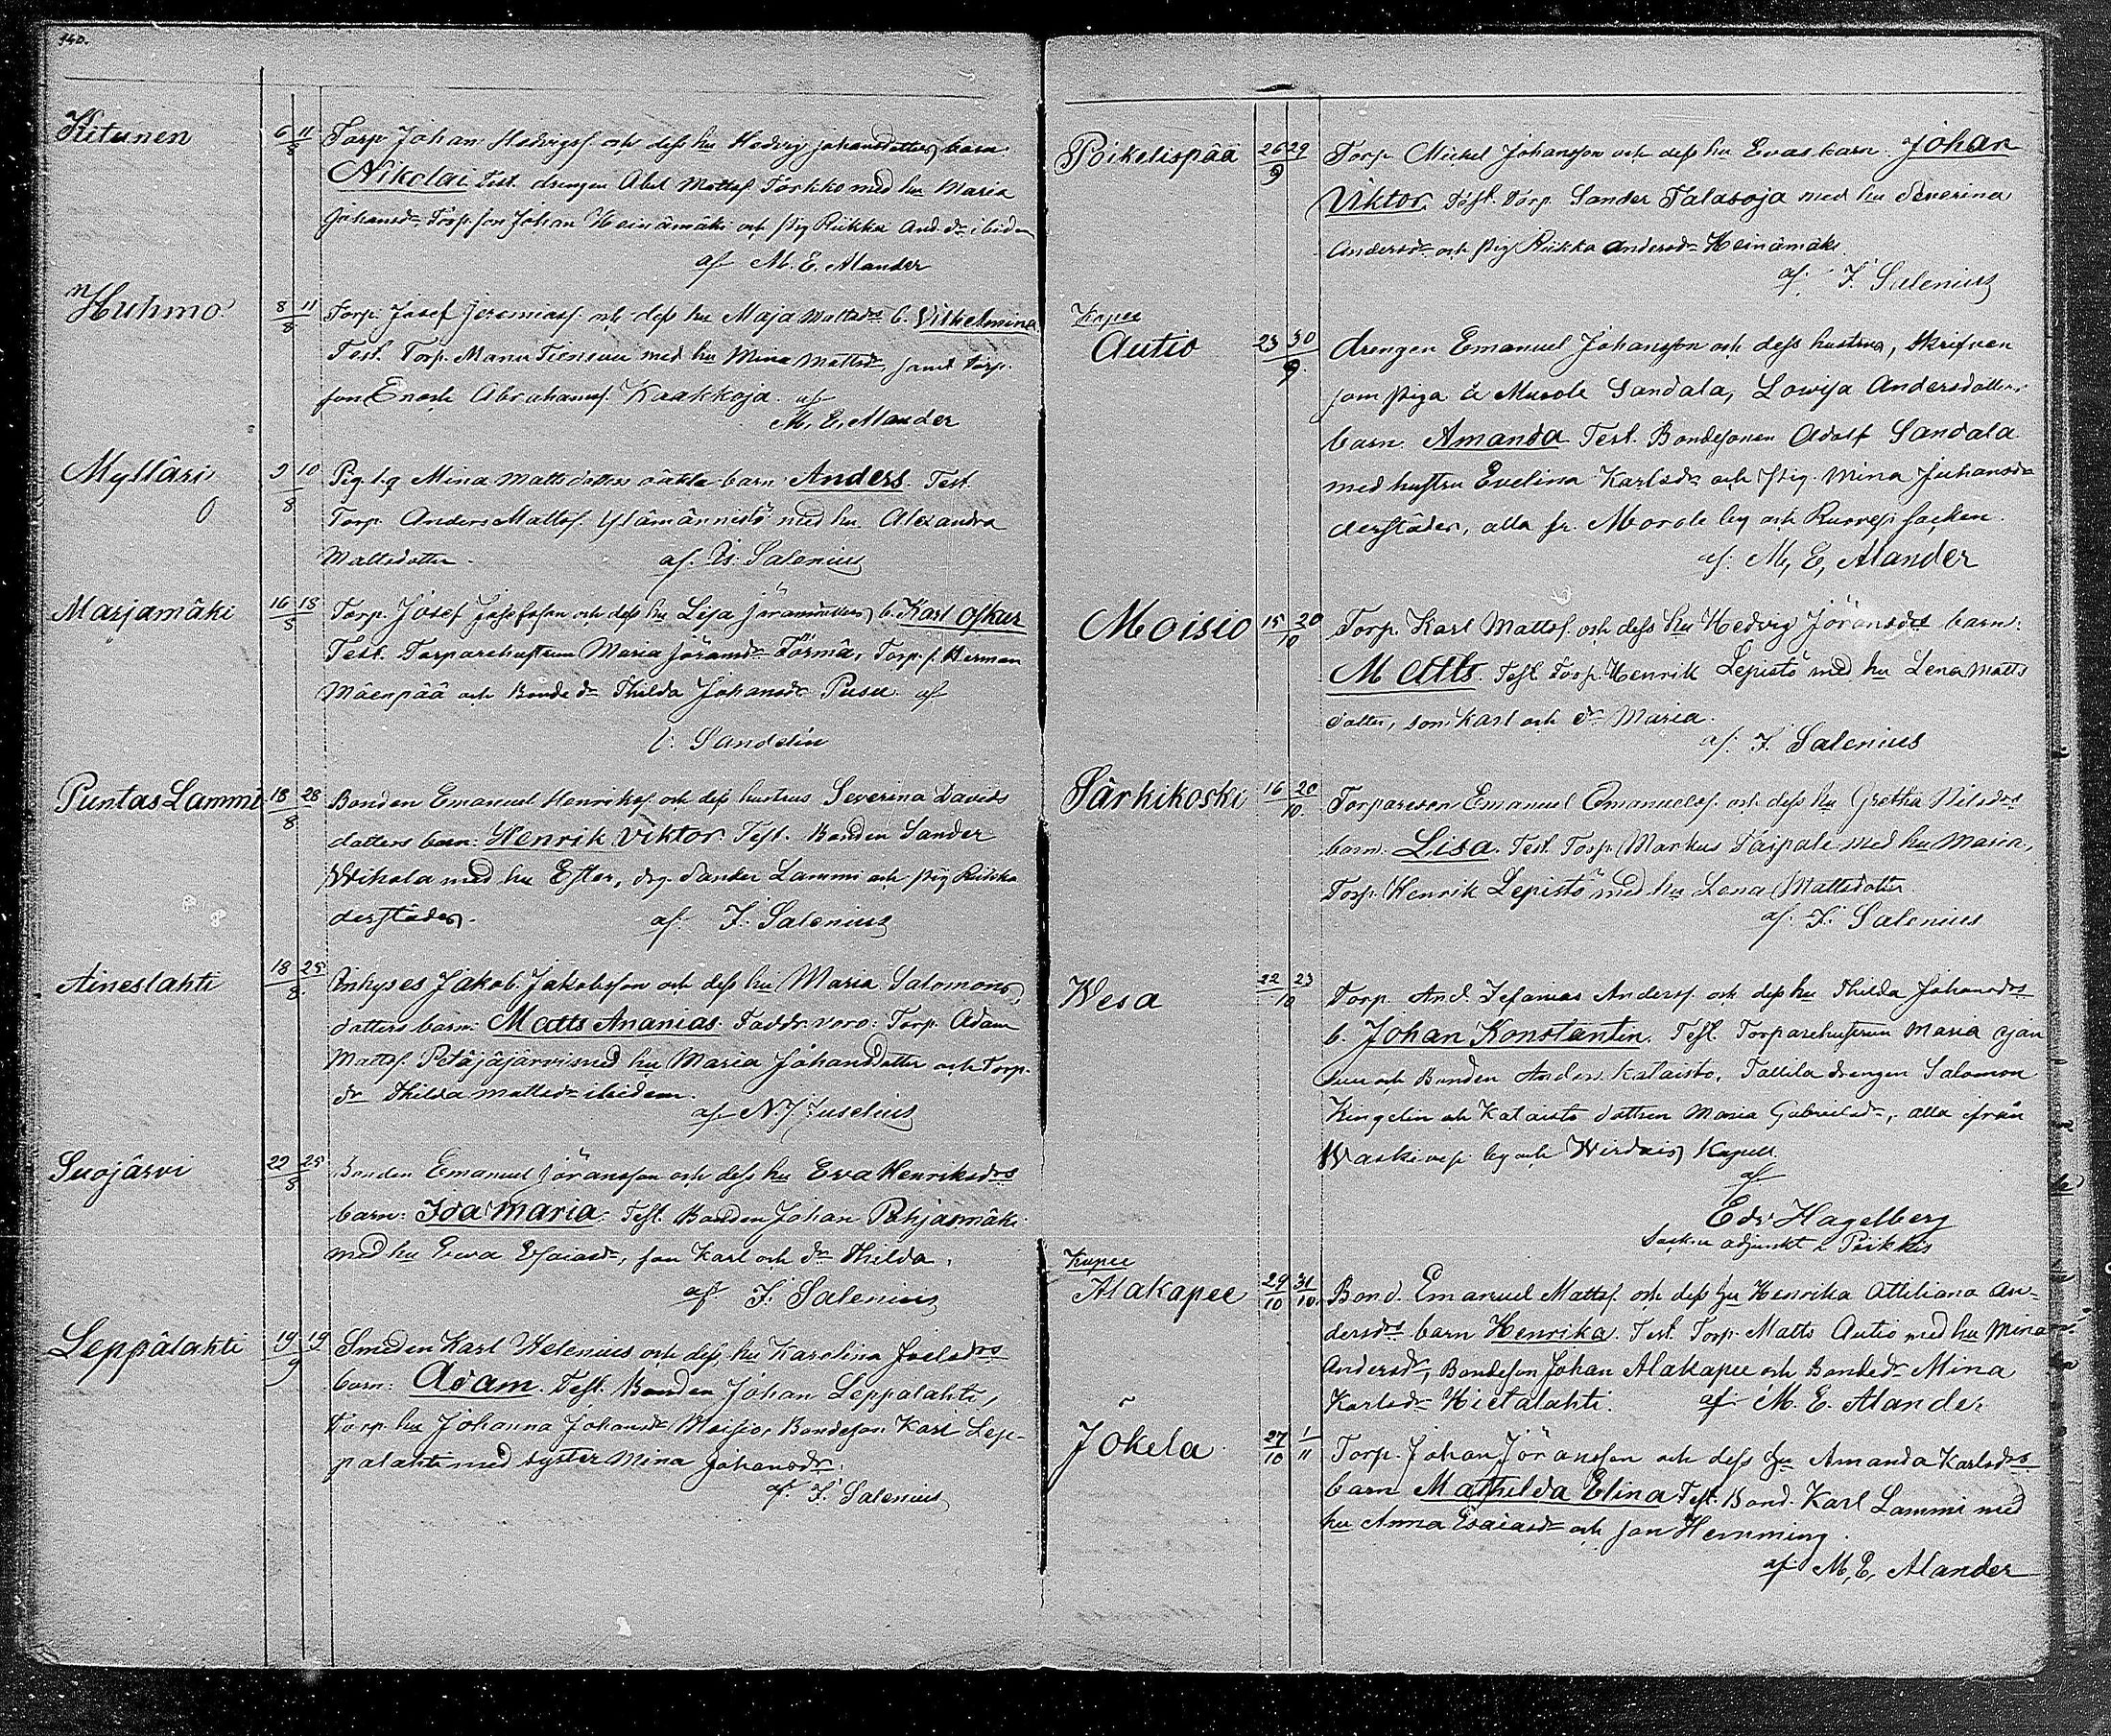 140.
Kitunen 6 11/8 Torp. Johan Hedvigsf. och dess hu Hedvig Johansdotters barn
Nikolai Test. drengen Abel Mattsf. Törkko med hu Maria
Johansdr, Torp. son Johan Heinämäki och pig Riikka And.dr ibidem
af M. E. Alander
Huhmo 8 11/8 Torp. Josef Jeremiasf. och dess hu Maja Mattsdrs b. Vilhelmina
Test. Torp. Manu Tienson med hu Mina Mattsdr, samt torp.
son Enok Abrahamsf. Kaakkoja. af
M. E. Alander
Mylläri 9 10/8 Pig. Mina Mattsdotters oäkta barn Anders. Test.
Torp. Anders Mattsf. med hu Alexandra
Mattsdotter. af. Is. Salenius
Marjamäki 16 18/8 Torp. Josef Josefsson och dess hu Lisa Jöransdotters b. Karl Oskar
Test. Torparehustrun Maria Jöransdr Törmä, Torp. s. Herman
Mäenpää och Bonde dr Thilda Johansdr Pusu. af
Sandelin
Puntas Lammi 18 28/8 Bonden Emanuel Henriksf. och dess hustrus Severina Davids
dotters barn: Henrik Viktor. Test. Bonden Sander
Wihola med hu Ester, drg. Sander Lammi och pig Riikka
derstädes. af. F. Salenius
Aineslahti 18 25/8 Inhyses Jakob Jakobsson och dess hu Maria Salomons
dotters barn: Matts Ananias. Faddr. voro: Torp. Adam
Mattsf. Petäjäjärvi med hu Maria Johansdotter och Torp.
dr Thilda Mattsdr ibidem.
af N. J. Juselius
Suojärvi 22 25/8 Bonden Emanuel Jöransson och dess hu Eva Henriksdrs
barn: Ida Maria. Test. Bonden Johan Pohjasmäki
med hu Ewa Esaiasdr, son Karl och dr Thilda.
af F. Salenius
Leppälahti 19 19/9 Smeden Karl Helenius och dess hu Karolina Joelsdrs
barn: Adam. Test. Bonden Johan Leppalahti,
Torp. hu Johanna Johansdr Moisio, Bondeson Karl Lep-
palahti med syster Mina Johansdr.
af. F. Salenius
Poikelispää 26 29/9 Torp. Mickel Johansson och dess hu Evas barn Johan
Viktor. Test. Torp. Sander Talasoja med hu Severina
Andersdr och pig Riikka Andersdr Heinämäki
af. F. Salenius
Kapee
Autio 23 30/9. drengen Emanuel Johansson och dess hustrus, skrifven
som piga å Murole Sandala, Lowisa Andersdotters
barn. Amanda Test. Bondesonen Adolf Sandala
med hustru Evelina Karlsdr och pig. Mina Juhansdr
derstädes, alla fr. Morole by och Ruovesi socken.
af. M, E, Alander
Moisio 15 20/10 Torp. Karl Mattsf. och dess hu Hedvig Jöransdrs barn:
Matts. Test Torp. Henrik Lepistö med hu Lena Matts
dotter, son Karl och dr Maria.
af. F. Salenius
Särkikoski 16 20/10. Torpareson Emanuel Emanuelsf. och dess hu Gretha Nilsdrs
barn. Lisa. Test. Torp. Markus Taipale med hu Maria,
Torp. Henrik Lepistö med hu Lena Mattsdotter
af. F. Salenius
Wesa 22 23/10 Torp. And. Andersf. och dess hu Thilda Johansdrs
b. Johan Konstantin. Test. Torparehustrun Maria
och Bonden Anders Kataisto, drengen Salomon
Kingelin och Kataisto dottren Maria Gabrielsdr, alla ifrån
Waskivesi by och Wirdois Kapell.
af
Edv Hagelberg
Sockne adjunkt i Peikkis
Kapee
Alakapee 29/10 31/10. Bond. Emanuel Mattsf. och dess hu Henrika Attiliana An-
dersdrs barn Henrika. Test. Torp. Matts Autio med hu Mina
Andersdr, Bondeson Johan Alakapee och Bondedr Mina
Karlsdr Hietalahti. af M. E. Alander
Jokela 27/10 1/11 Torp. Johan Jöransson och dess hu Amanda Karlsdrs
barn Mathilda Elina Test. Bond. Karl Lammi med
hu Anna Esaiasdr och son Hemming.
af M, E, Alander